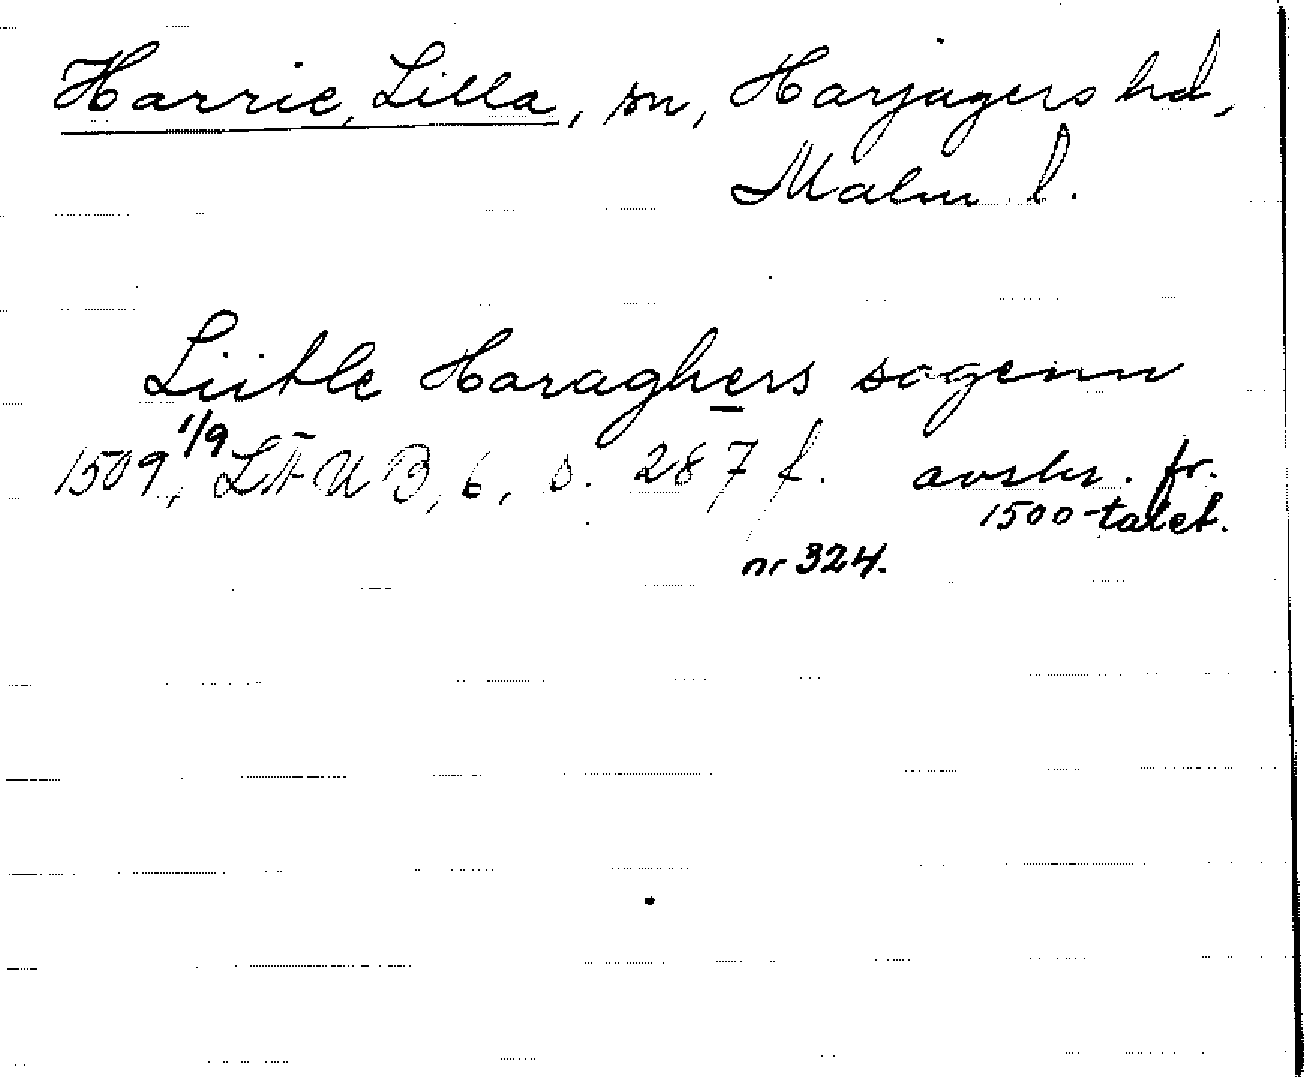 Harrie, Lilla, sn, Harjagers hd,
Malm l.
Liitle Haraghers sogenn
1509 1/9, LÄUB, 6, s. 287 f. avskr. fr.
1500-talet.
nr 324.